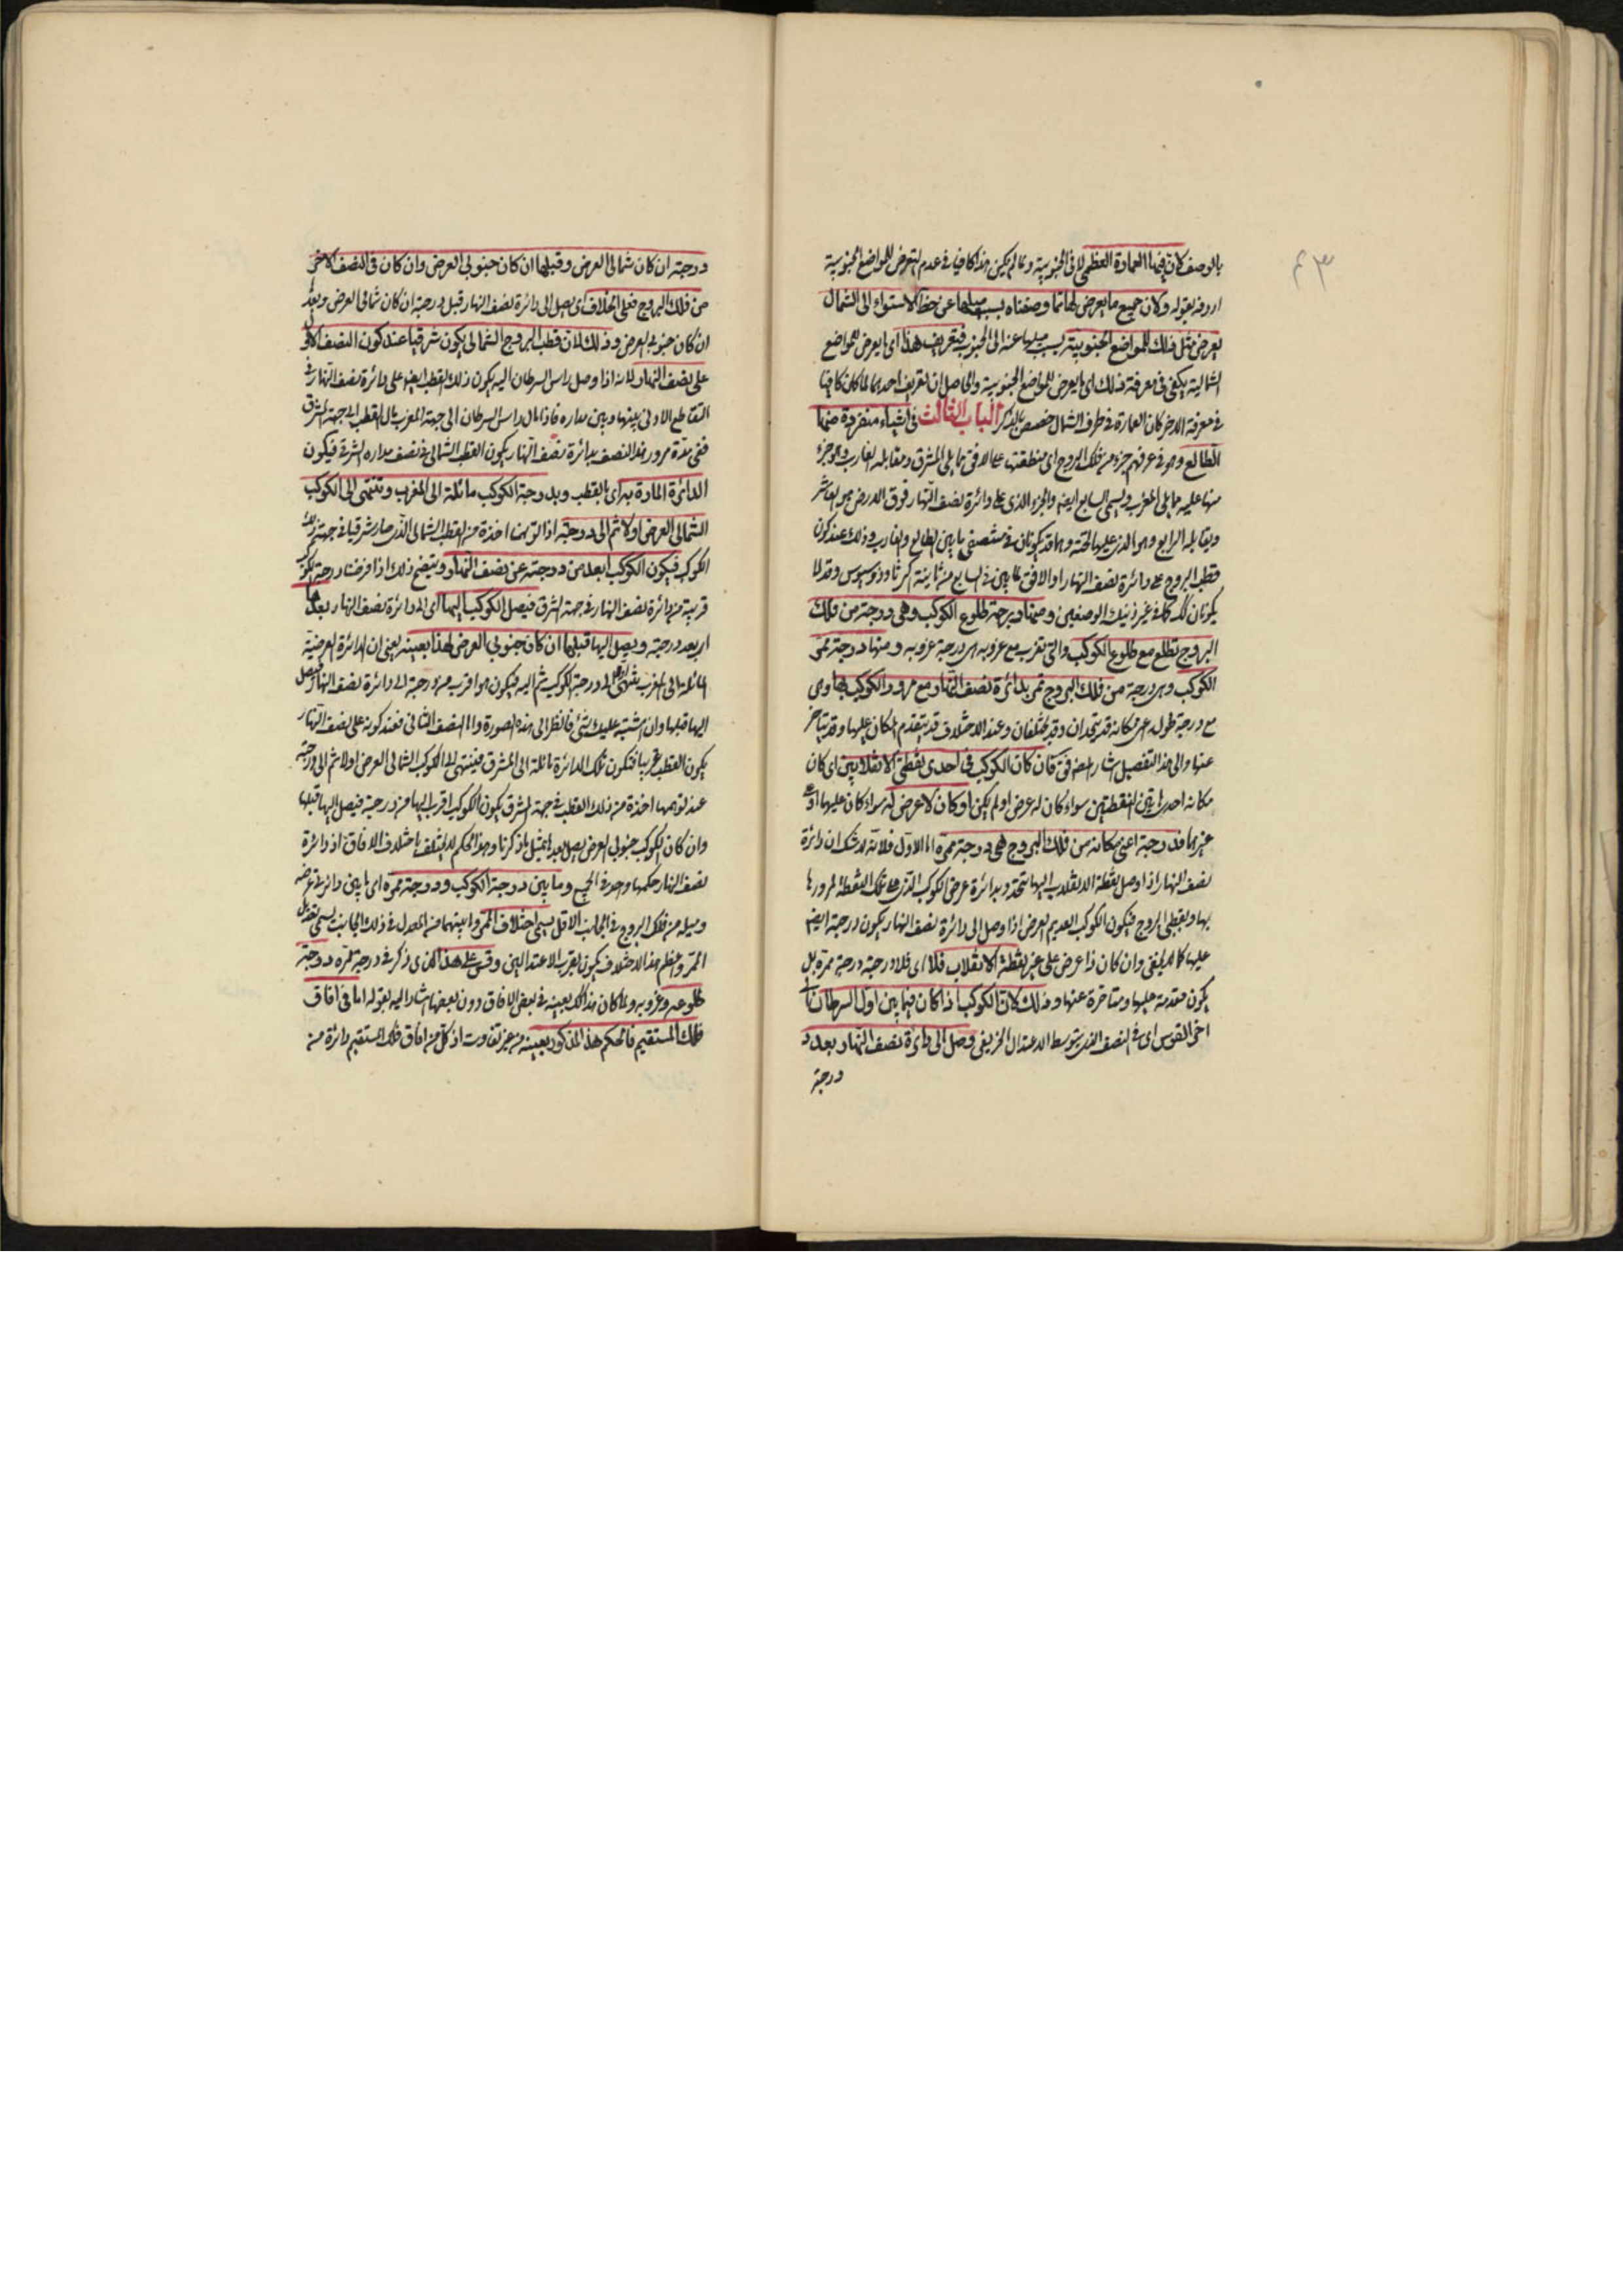 ٤٣
بالوصف لان فيها العمارة العظمى لا فى الجنوبية ولما لم يكن هذا كافيا فى عدم التعرض للمواضع الجنوبية
اردفه بقوله وكان جميع ما يعرض لها مما وصفناه بسبب ميلها عن خط الاستواء الى الشمال
يعرض مثل ذلك للمواضع الجنوبية بسبب ميلها عنه الى الجنوب فتعريف هذا اى ما يعرض للمواضع
الشمالية يكفى فى معرفة ذلك اى ما يعرض للمواضع الجنوبية والحاصل ان تعريف احديهما لما كان كافيا
فى معرفة الاخر وكان العمارة فى طرف الشمال خصص بالذكر الباب الثالث فى اشياء منفردة منها
الطالع وهو فى عرفهم جزء من فلك البروج اى منطقتها على الافق مما يلى المشرق ومقابله الغارب وهو جزء
منها عليه مما يلى المغرب ويسمى السابع ايضا والجزء الذى على دائرة نصف النهار فوق الارض هو العاشر
ويقابله الرابع وهو الذى عليها تحته وهما قد يكونان فى منتصفى ما بين الطالع والغارب وذلك عند كون
قطب البروج على دائرة نصف النهار او الافق لما بين فى السابع من ثانية اكر ثاوذوسيوس وقد لا
يكونان كذلك كما فى غير ذينك الوضعين ومنها درجة طلوع الكوكب وهى درجة من فلك
البروج تطلع مع طلوع الكوكب والتى تغرب مع غروبه هى درجة غروبه ومنها درجة ممر
الكوكب وهى درجة من فلك البروج تمر بدائرة نصف النهار مع مرور الكوكب بها وهى
مع درجة طوله اعنى مكانه قد يتحدان وقد يختلفان وعند الاختلاف قد يتقدم المكان عليها وقد يتاخر
عنها والى هذا التفصيل اشار المصنف فى قوله فان كان الكوكب فى احدى نقطتى الانقلابين اى كان
مكانه احدى هاتين النقطتين سواء كان له عرض او لم يكن او كان لا عرض له سواء كان عليها او على
غيرهما فدرجته اعنى مكانه من فلك البروج هى درجة ممره اما الاول فلانه لا شك ان دائرة
نصف النهار اذا وصل نقطة الانقلاب اليها تتحد بدائرة عرض الكوكب الذى على تلك النقطة لمرورها
بها وبقطبى البروج فيكون الكوكب العديم العرض اذا وصل الى دائرة نصف النهار يكون درجته ايضا
عليها كما لا يخفى وان كان ذا عرض على غير نقطة الانقلاب فلا اى فلا درجته درجة ممره بل
يكون متقدمة عليها او متاخرة عنها وذلك لان الكوكب اذا كان فيما بين اول السرطان الى
اخر القوس اى فى النصف الذى يتوسطه الاعتدال الخريفى وصل الى دائرة نصف النهار بعد
درجته
درجته ان كان شمالى العرض وقبلها ان كان جنوبى العرض وان كان فى النصف الاخر
من فلك البروج فعلى الخلاف اى يصل الى دائرة نصف النهار قبل درجته ان كان شمالى العرض وبعدها
ان كان جنوبى العرض وذلك لان قطب البروج الشمالى يكون شرقيا عند كون النصف الاول
على نصف النهار لانه اذا وصل راس السرطان اليه يكون ذلك القطب ايضا على دائرة نصف النهار فى
التقاطع الادنى بينها وبين مداره فاذا مال راس السرطان الى جهة المغرب مال القطب الى جهة المشرق
ففى مدة مرور هذا النصف بدائرة نصف النهار يكون القطب الشمالى فى نصف مداره الشرقى فيكون
الدائرة المارة به اى بالقطب وبدرجة الكوكب مائلة الى المغرب وتنتهى الى الكوكب
الشمالى العرض اولا ثم الى درجته اذا توهمنا اخذة من القطب الشمالى الذى صار شرقيا فى جهة ذلك
الكوكب فيكون الكوكب ابعد من درجته عن نصف النهار ويتضح ذلك اذا فرضنا درجة الكوكب
قريبة من دائرة نصف النهار فى جهة الشرق فيصل الكوكب اليها اى الى دائرة نصف النهار بعدها
اى بعد درجته ويصل اليها قبلها ان كان جنوبى العرض لهذا بعينه يعنى ان الدائرة العرضية
المائلة الى المغرب ينتهى اولا الى درجة الكوكب ثم اليه فيكون هو اقرب من درجته الى دائرة نصف النهار فيصل
اليها قبلها وان اشتبه عليك شئ فانظر الى هذه الصورة واما النصف الثانى فعند كونه على نصف النهار
يكون القطب غربيا فتكون تلك الدائرة مائلة الى المشرق فينتهى الى الكوكب الشمالى العرض اولا ثم الى درجته
عند توهمها اخذة من ذلك القطب فى جهة المشرق يكون الكوكب اقرب اليها من درجته فيصل اليها قبلها
وان كان الكوكب جنوبى العرض يصل بعدها بمثل ما ذكرنا وهذا الحكم لا يختلف باختلاف الافاق اذ دائرة
نصف النهار حكمها واحد فى الجميع وما بين درجة الكوكب ودرجة ممره اى ما بين دائرتى عرضه
وميله من فلك البروج فى الجانب الاقل يسمى اختلاف الممر وما بينهما من المعدل فى ذلك الجانب يسمى تعديل
الممر واعظم هذا الاختلاف يكون بقرب الاعتدالين وقس على هذا الذى ذكر فى درجة ممره درجة
طلوعه وغروبه ولما كان هذا كذلك بعينه فى بعض الافاق دون بعضها اشار اليه بقوله اما فى افاق
فلك المستقيم فالحكم هذا المذكور بعينه من غير تفاوت اذ كل من افاق فلك المستقيم دائرة من